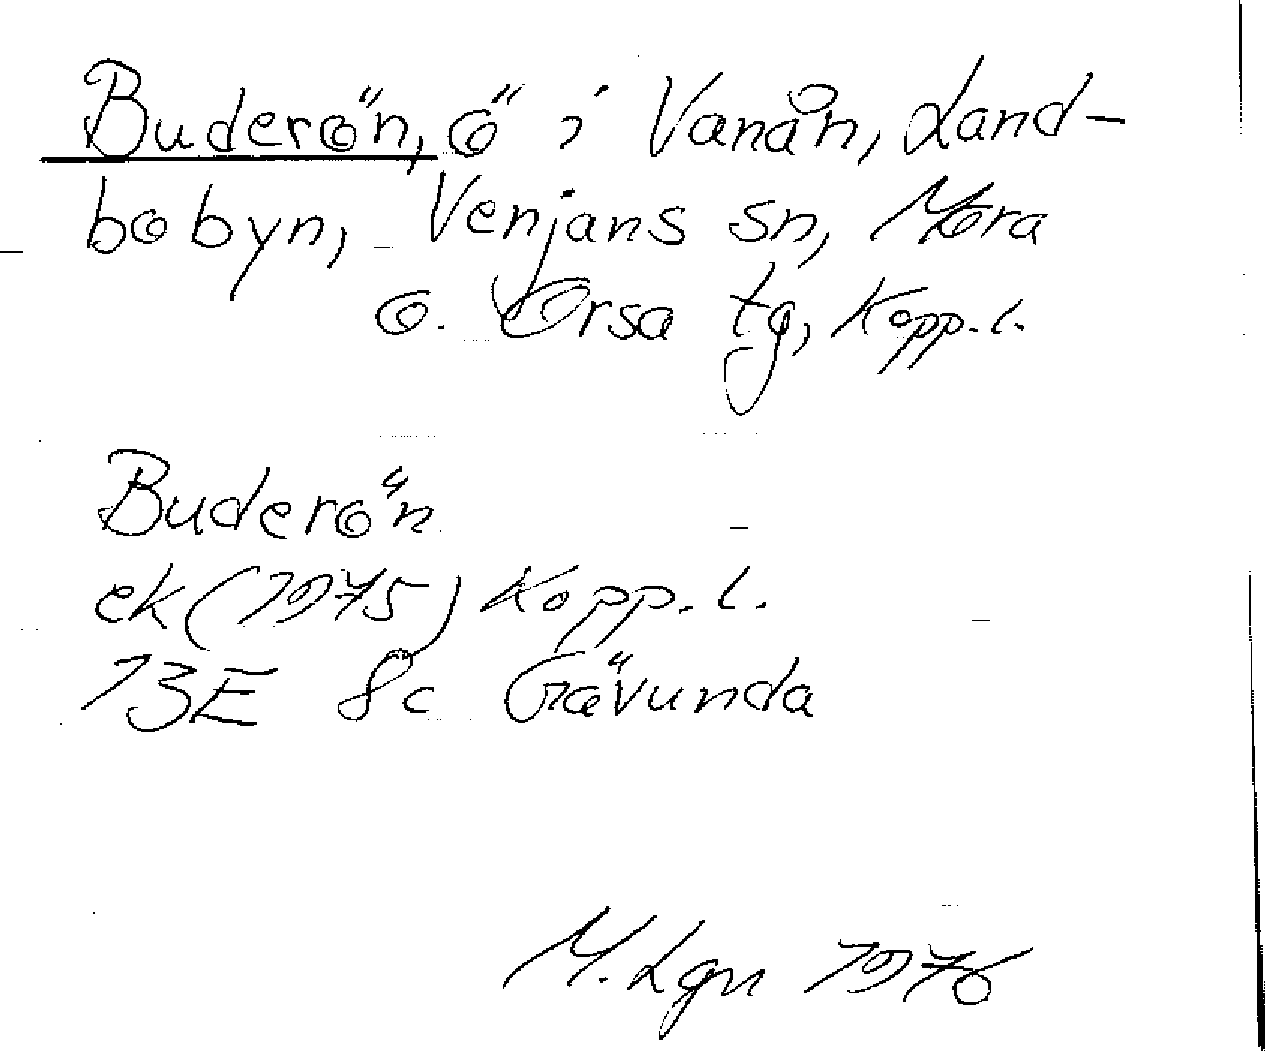 Buderön, ö i Vanån, Land-
bobyn, Venjans sn, Mora
o. Orsa tg, Kopp. l.
Buderön
ek (1975) Kopp. l.
13E 8c Gävunda
M. Lgn 1976